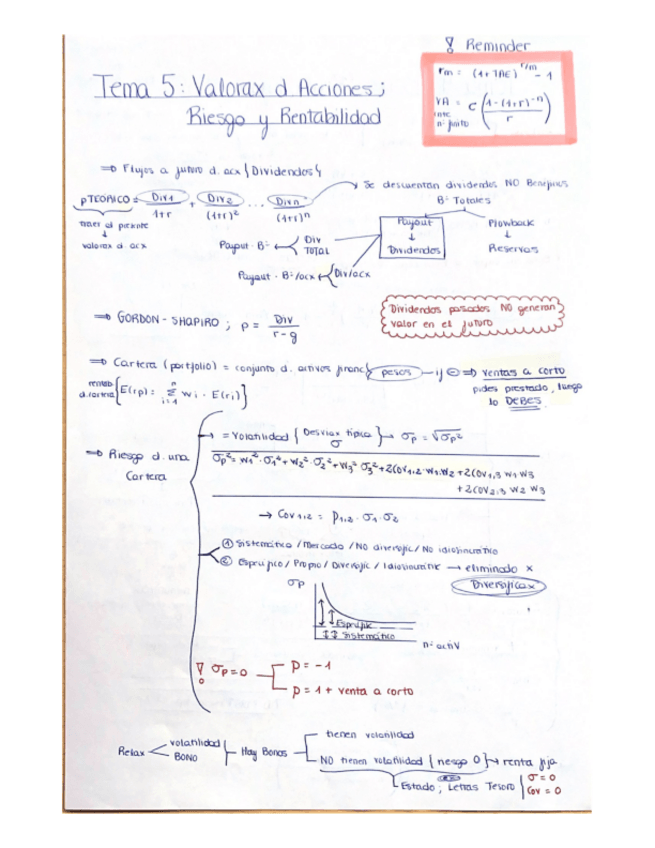 ! Reminder
rm = (1+TAE)^(r/m) - 1
VA = C ((1-(1+r)^-n)/r)
n: finito
Tema 5: Valorax d Acciones;
Riesgo y Rentabilidad
⇒ Flujos a futuro d. acx { Dividendos }
Se descuentan dividendos NO Beneficios
P TEORICO = Div1/(1+r) + Div2/(1+r)^2 ... Divn/(1+r)^n
traer al presente
↓
valorax d acx
B: Totales
Payout
↓
Dividendos
Plowback
↓
Reservas
Payout · B: Div TOTAL
Payout · B:/acx Div/acx
⇒ GORDON - SHAPIRO ; P = Div/(r-g)
Dividendos pasados NO generan
valor en el futuro
⇒ Cartera (portfolio) = conjunto d. activos financ pesos — if ⊖ ⇒ ventas a corto
pides prestado, luego
lo DEBES
rentab d. cartera [E(rp) = Σ i=1 n wi · E(ri)]
⇒ Riesgo d. una
Cartera
→ = Volatilidad { Desviax típica σ } → σp = √σp²
σp² = w1²·σ1² + w2²·σ2² + w3²·σ3² + 2Cov1,2·w1·w2 + 2Cov1,3 w1 w3
+ 2Cov2,3 w2 w3
→ Cov1,2 = ρ1,2·σ1·σ2
① Sistemático / Mercado / No diversific / No idiosincrático
② Específico / Propio / Diversific / Idiosincrátic → eliminado x
Diversificax
σp
Específic
Sistemático
n: activ
! σp = 0
ρ = -1
ρ = 1 + venta a corto
Relax
volatilidad
BONO
Hay Bonos
tienen volatilidad
NO tienen volatilidad { riesgo 0 } → renta fija
Estado ; Letras Tesoro
σ = 0
Cov = 0